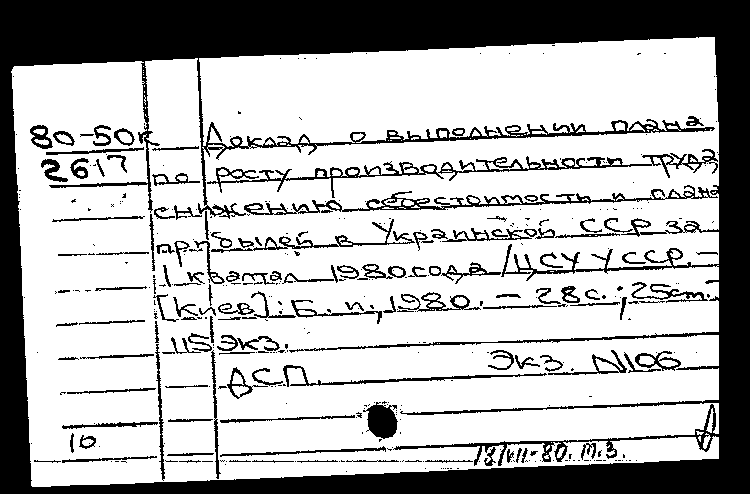 80-50к Доклад о выполнении плана
2617 по росту производительности труда,
снижению себестоимости и плана
прибылей в Украинской ССР за
I квартал 1980 года /ЦСУ УССР. –
[Киев]: Б. и., 1980. – 28 с.; 25 см. –
115 экз.
ДСП. Экз. №106
10
18/VII-80. т.з.